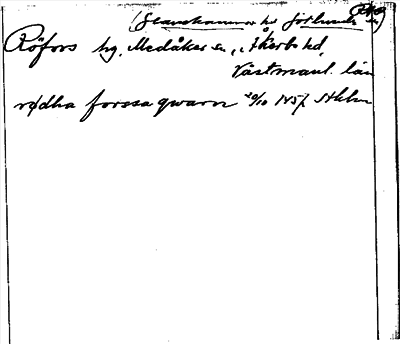 (Glanshammar hd
Röfors hg. Medåker sn, Åkerbo hd,
Västmanl. län
rødha forssa qwarn 20/10 1457 Sthlm